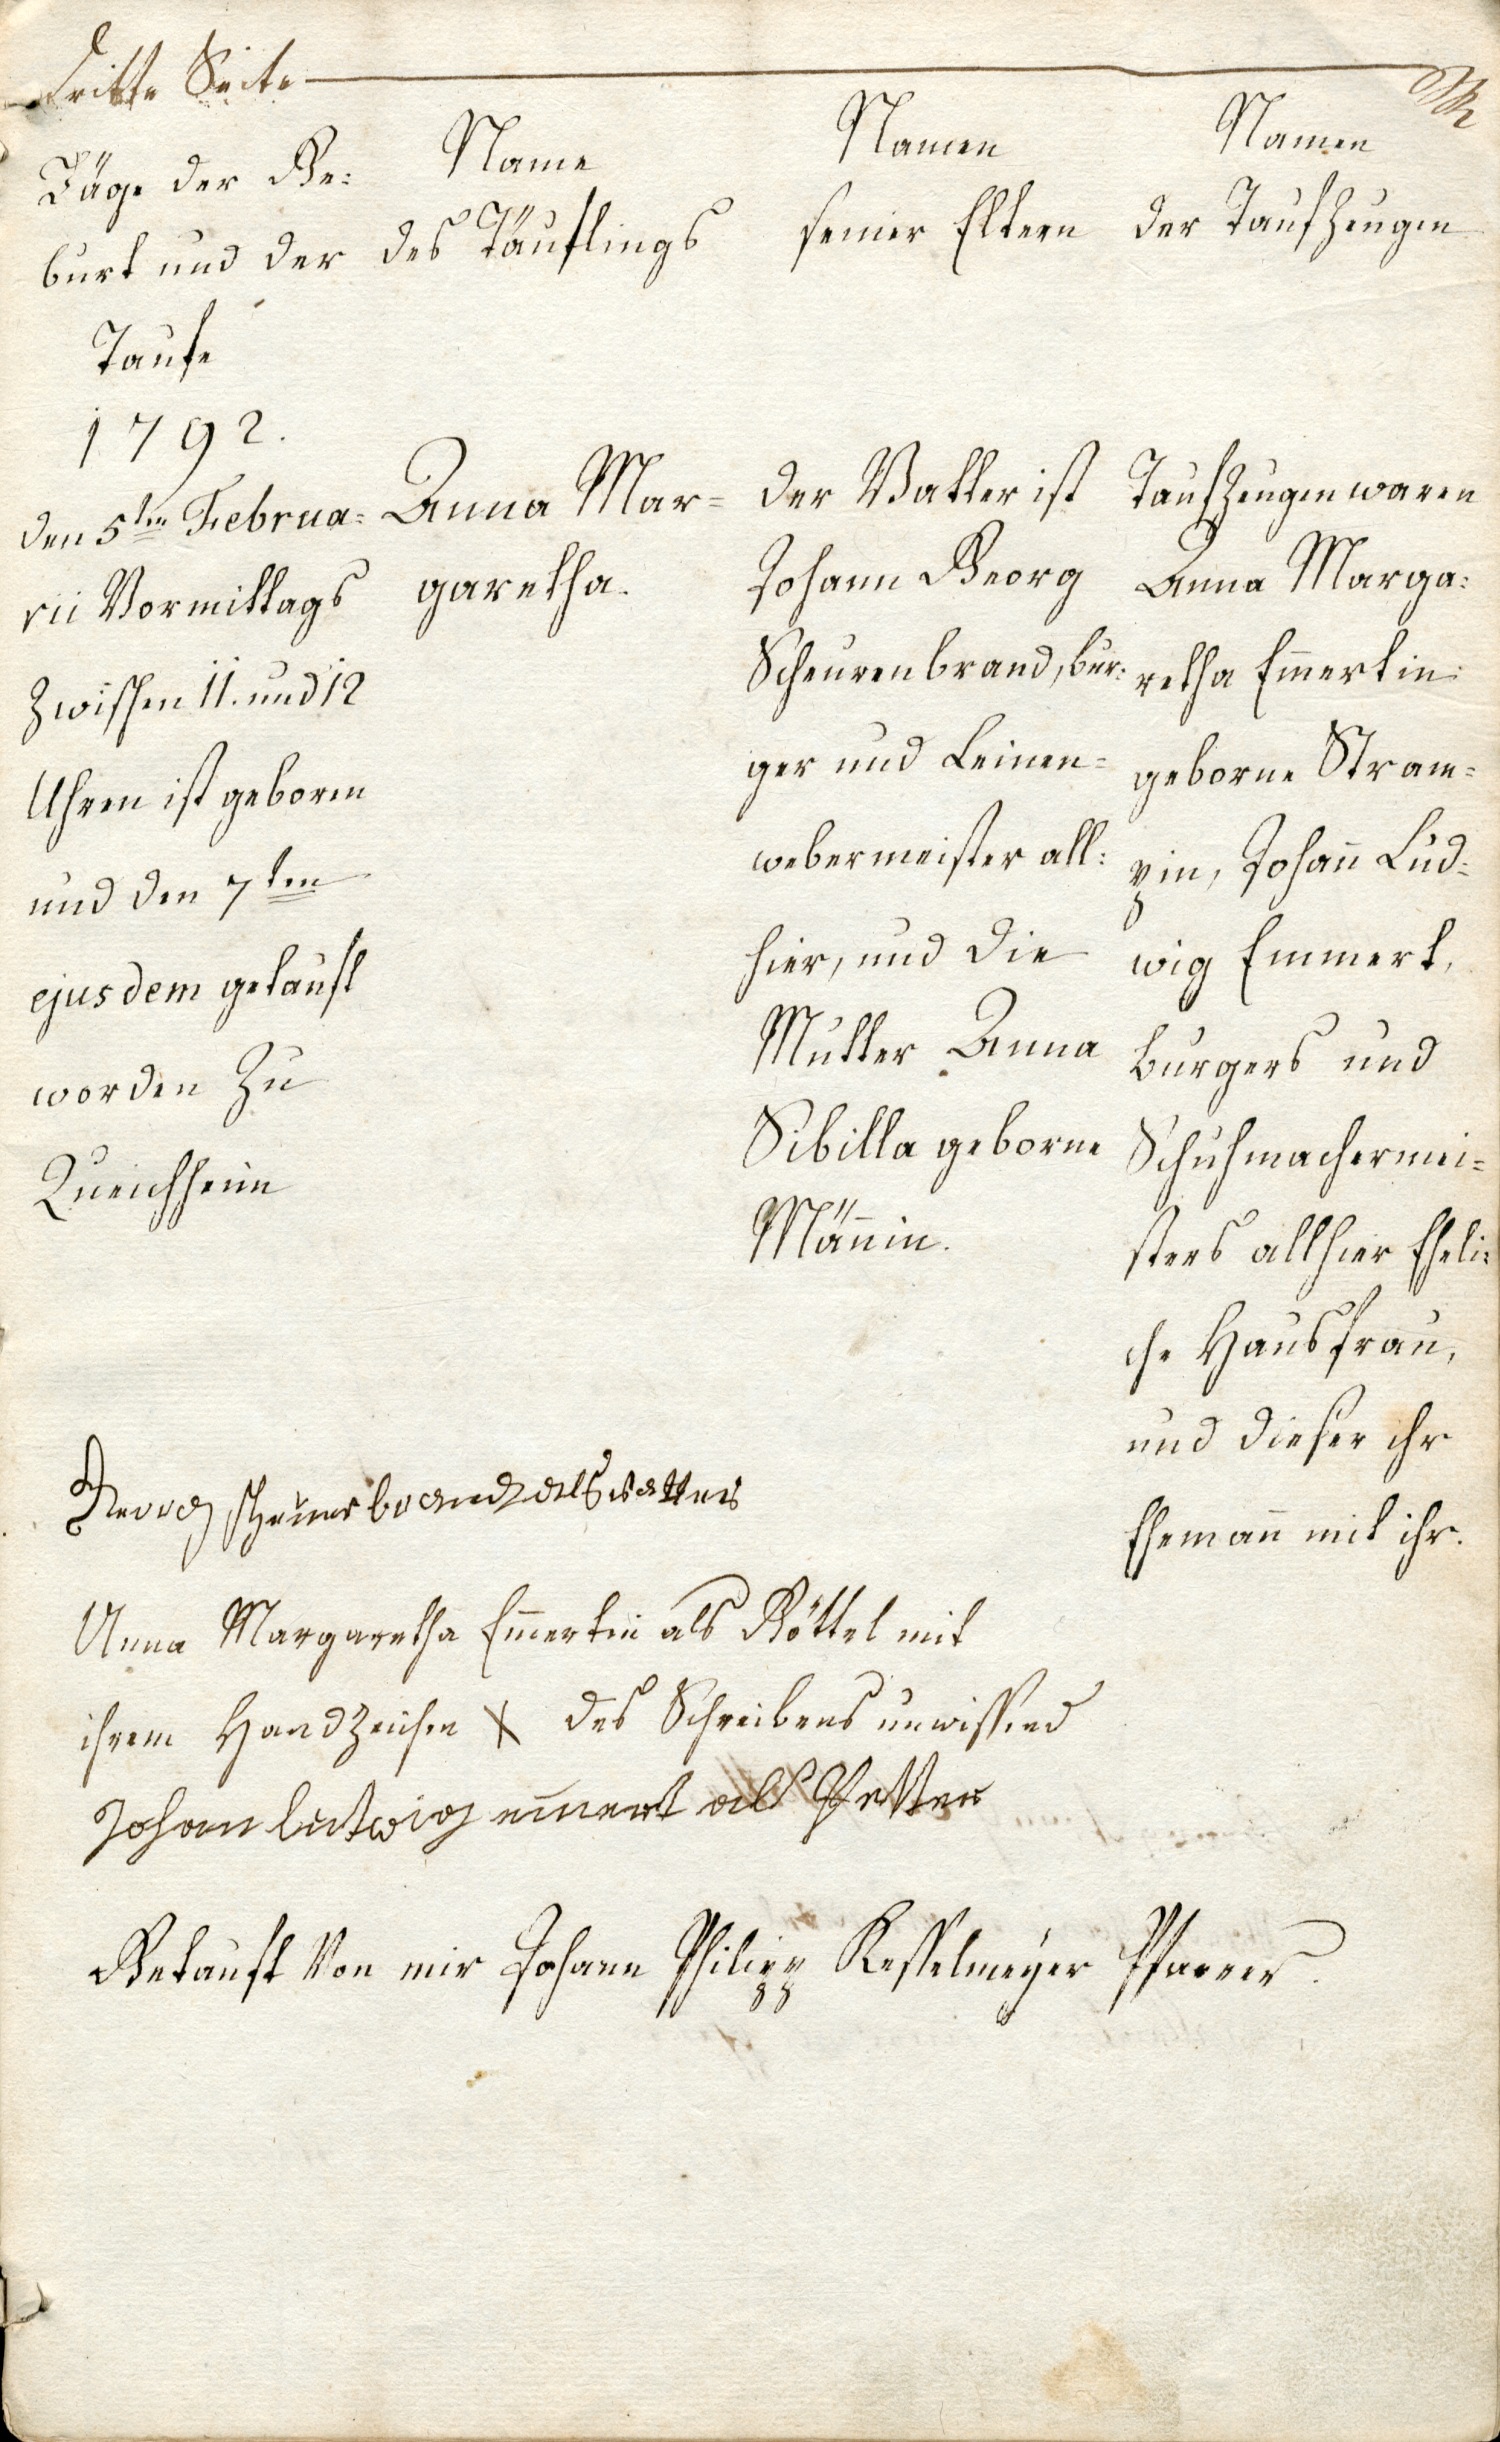 Dritte Seite
Täge der Ge:
burt und der
Taufe
1792.
den 5ten Februa=
rii Vormittags
Zwischen 11. und 12
Uhren ist geboren
und den 7ten
ejusdem getauft
worden Zu
Queichheim
Name
des Täuflings
Anna Mar=
garetha.
Namen
seiner Eltern
der Vatter ist
Johann Georg
Scheurenbrand, bur:
ger und Leinen=
webermeister all:
hier, und die
Mutter Anna
Sibilla geborne
Männin.
Namen
der Taufzeugen
Taufzeugen waren
Anna Marga:
retha Em̄ertin
geborne Stram=
pin, Johan̄ Lud=
wig Emmert,
burgers und
Schuhmachermei=
sters allhier Eheli:
che Hausfrau,
und dieser ihr
Eheman̄ mit ihr.
Georg scheurerbrand als vatter
Anna Margaretha Em̄ertin als Göttel mit
ihrem Handzeichen X des Schreibens unwissend
Johan ludwig em̄ert als Petter
Getauft Von mir Johann Philipp Kesselmeyer Pfarrer.